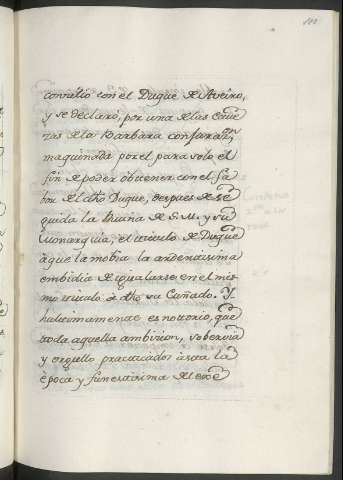 convitio con el Duque de Aveiro,
y se declaró, por una de las Cave
zas de la Barbara conjuraon,
maquinada por el para solo el
fin de poder obtener con el fa
bor del dho Duque, despues de se
guida la Ruina de S. M. y su
Monarquia, el titulo de Duque
à que la mobia la ardentisima
embidia de igualarse en el mis
mo titulo à dho su Cuñado. Y
hultimamente es nottorio, que
toda aquella ambision, sobervia
y orgullo practicados àsta la
època y funestisima de este